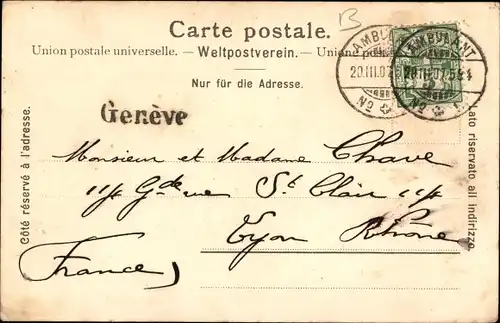 Carte postale.
Union postale universelle. – Weltpostverein. – Unione
Nur für die Adresse.
B
AMBULANT
20.III.07
No
AMBULANT
20.III.07
No
Genève
Côté réservé à l'adresse.
Monsieur et Madame Chave
Gde rue St Clair
Lyon Rhône
(France)
lato riservato all indirizzo.